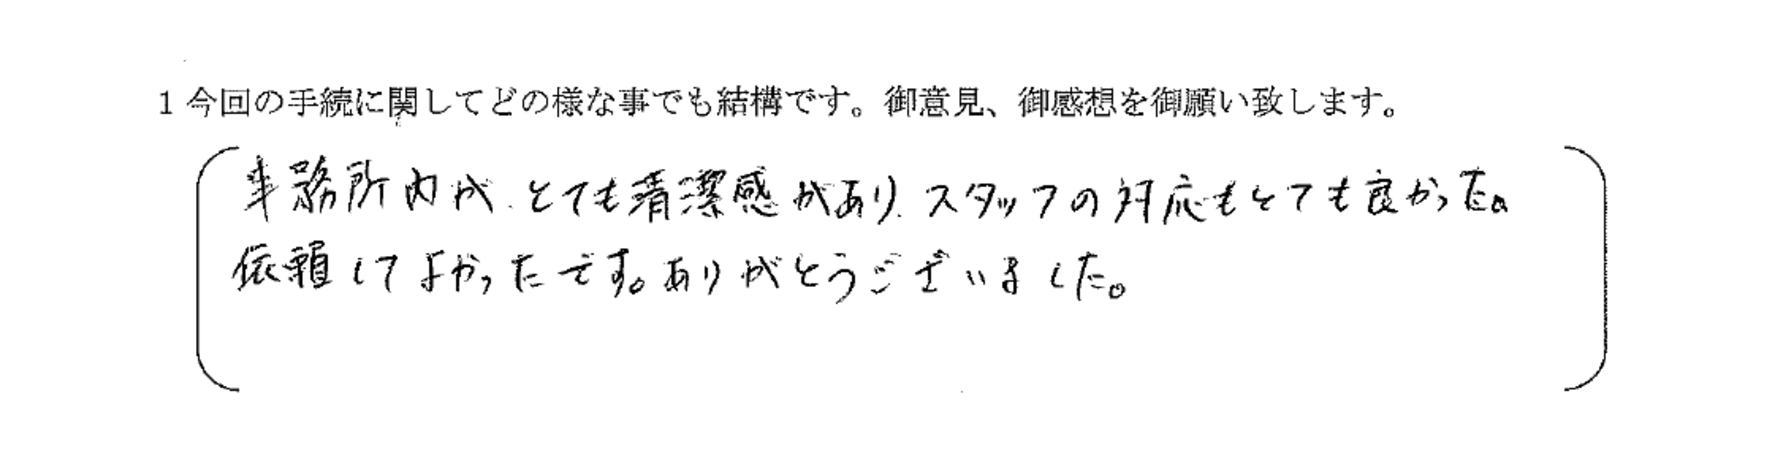 1 今回の手続に関してどの様な事でも結構です。御意見、御感想を御願い致します。
事務所内が、とても清潔感があり、スタッフの対応もとても良かった。
依頼してよかったです。ありがとうございました。